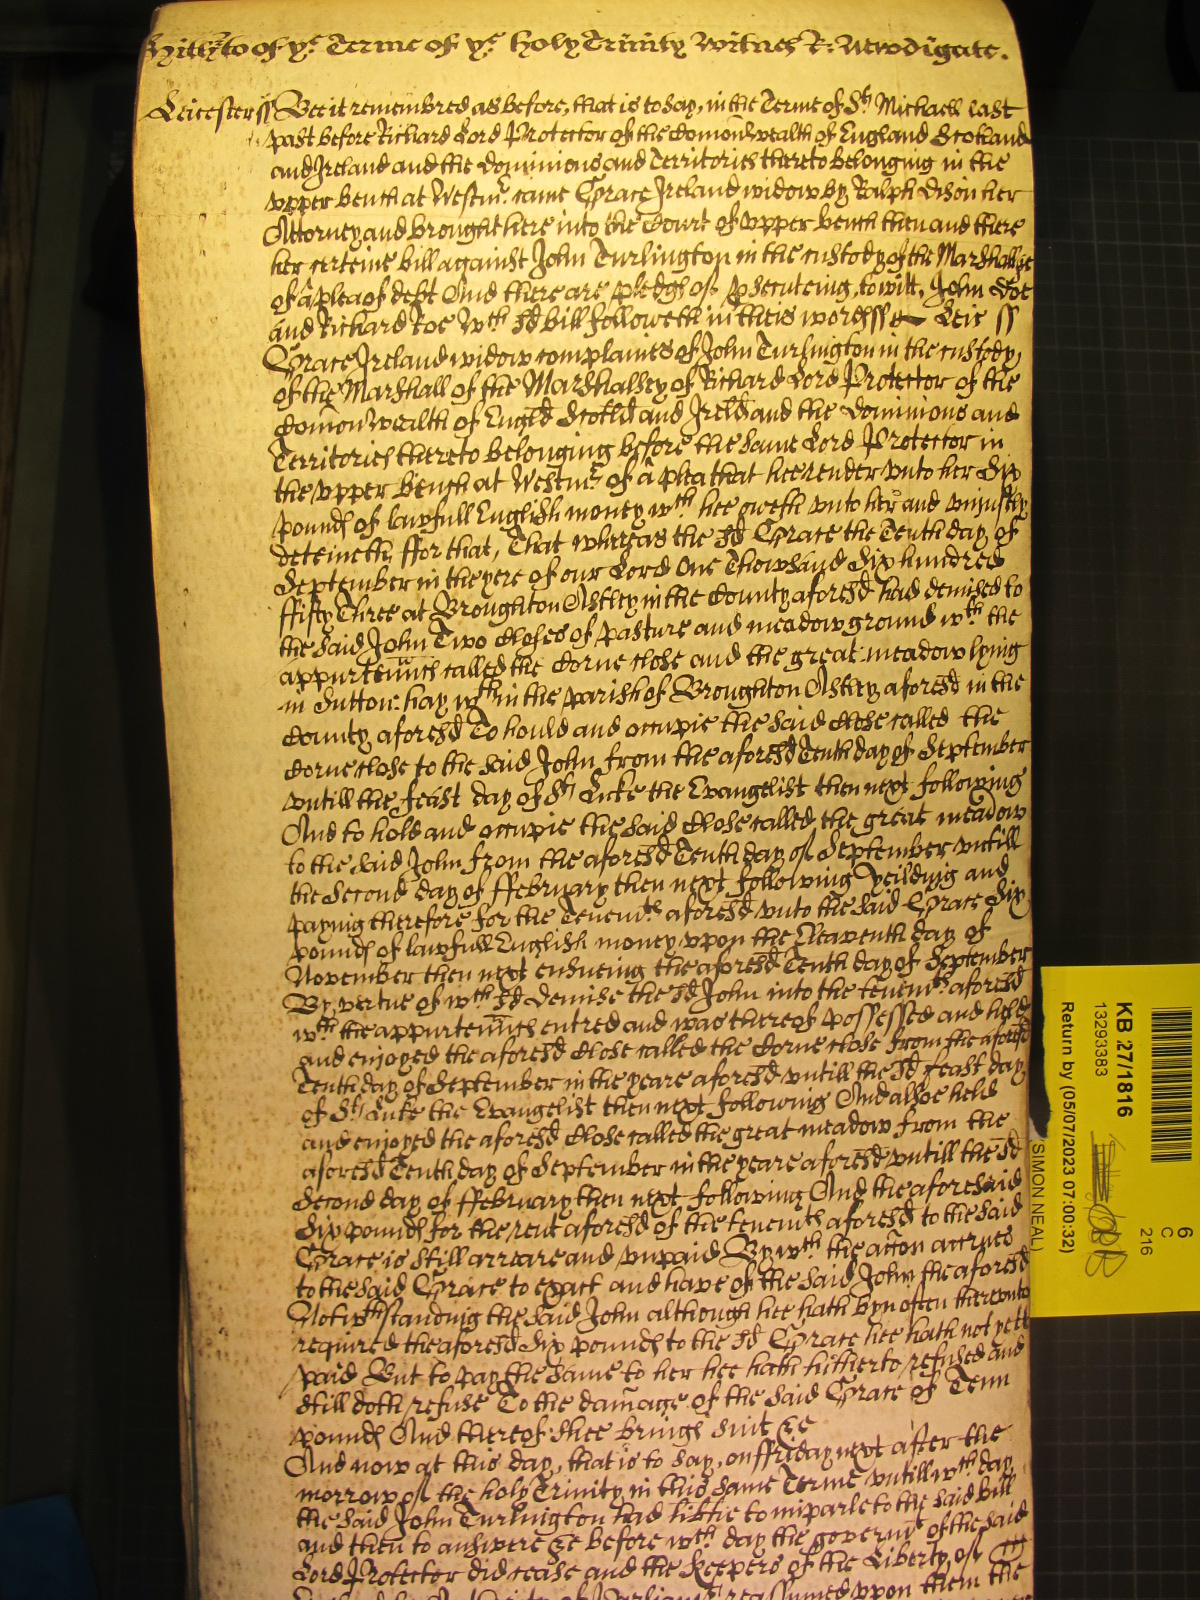 of ye Terme of ye holy Trinity Witnes R: Newdigate.
Leicester ss Bee it remembred as before, that is to say, in the Terme of St Michaell last
past before Richard Lord Protector of the Comonwealth of England Scotland
and Ireland and the Dominions and Territories thereto belonging in the
upper bench at Westmr came Grace Ireland widow by Ralph Dison her
Attorney and brought here into the Court of upper bench then and there
her certeine bill against John Turlington in the custody of the Marshall &c
of a plea of debt And there are pledgs of psecuteing, to witt, John Doe
and Richard Roe Wch sd bill followeth in theis words ss Leic ss
Grace Ireland widow complaines of John Turlington in the custody
of the Marshall of the Marshalsey of Richard Lord Protector of the
Comon Wealth of Engld Scotld and Ireld and the Dominions and
Territories thereto belonging before the same Lord Protector in
the upper bench at Westmr of a plea that hee render unto her Six
pounds of lawfull English money wch hee oweth unto her and uniustly
deteineth, ffor that, That whereas the sd Grace the Tenth day of
September in the yere of our Lord One Thowsand Six hundred
ffifty Three at Broughton Astley in the County aforesd had demised to
the said John Two Closes of pasture and meadow ground wth the
appurtenncs called the Corne close and the great meadow lying
in Sutton: hay wthin the parish of Broughton Astley aforesd in the
County aforesd To hould and occupie the said Close called the
Corne close to the said John from the aforesd Tenth day of September
untill the feast day of St Luke the Evangelist then next following
And to hold and occupie the said Close called the great meadow
to the said John from the aforesd Tenth day of September untill
the Second day of ffebruary then next following Yeilding and
paying therefore for the Tenemts aforesd unto the said Grace Six
pounds of lawfull English money upon the Eleaventh day of
November then next ensueing the aforesd Tenth day of September
By vertue of wch sd demise the sd John into the tenemts aforesd
wth the appurtenncs entred and was thereof possessed and held
and enjoyed the aforesd Close called the Corne close from the aforesd
Tenth day of September in the yeare aforesd untill the sd feast day
of St Luke the Evangelist then next following And alsoe held
and enjoyed the aforesd Close called the great meadow from the
aforesd Tenth day of September in the yeare aforesd untill the sd
Second day of ffebruary then next following And the aforesaid
Six pounds for the rent aforesd of the tenemts aforesd to the said
Grace is still arreare and unpaid By wch the accon accrues
to the said Grace to exact and have of the said John the aforesd
Notwthstanding the said John although hee hath byn often thereunto
required the aforesd Six pounds to the sd Grace hee hath not yett
paid But to pay the same to her hee hath hitherto refused and
still doth refuse To the damage of the said Grace of Tenn
pounds And thereof shee brings suit &c
And now at this day, that is to say, on ffriday next after the
morrow of the holy Trinity in this same Terme untill wch day
the said John Turlington had libtie to imparle to the said bill
and then to answere &c before wch day the governmt of the said
Lord Protector did cease and the Keepers of the Liberty of
upon them the
KB 27/1816
13293383
Return by (05/07/2023 07:00:32)
(SIMON NEAL)
6
C
216